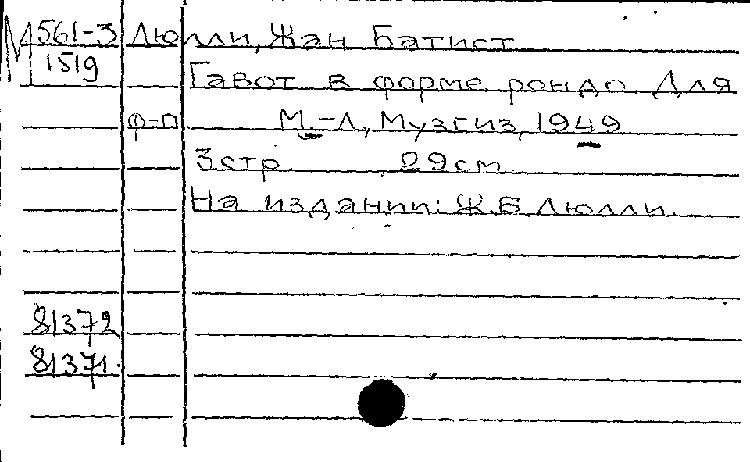 М 561-3 Люлли, Жан Батист
1519 Гавот в форме рондо Для
ф-п М.-Л, Музгиз, 1949
3стр 29см
На издании: Ж.Б Люлли.
81372
81371